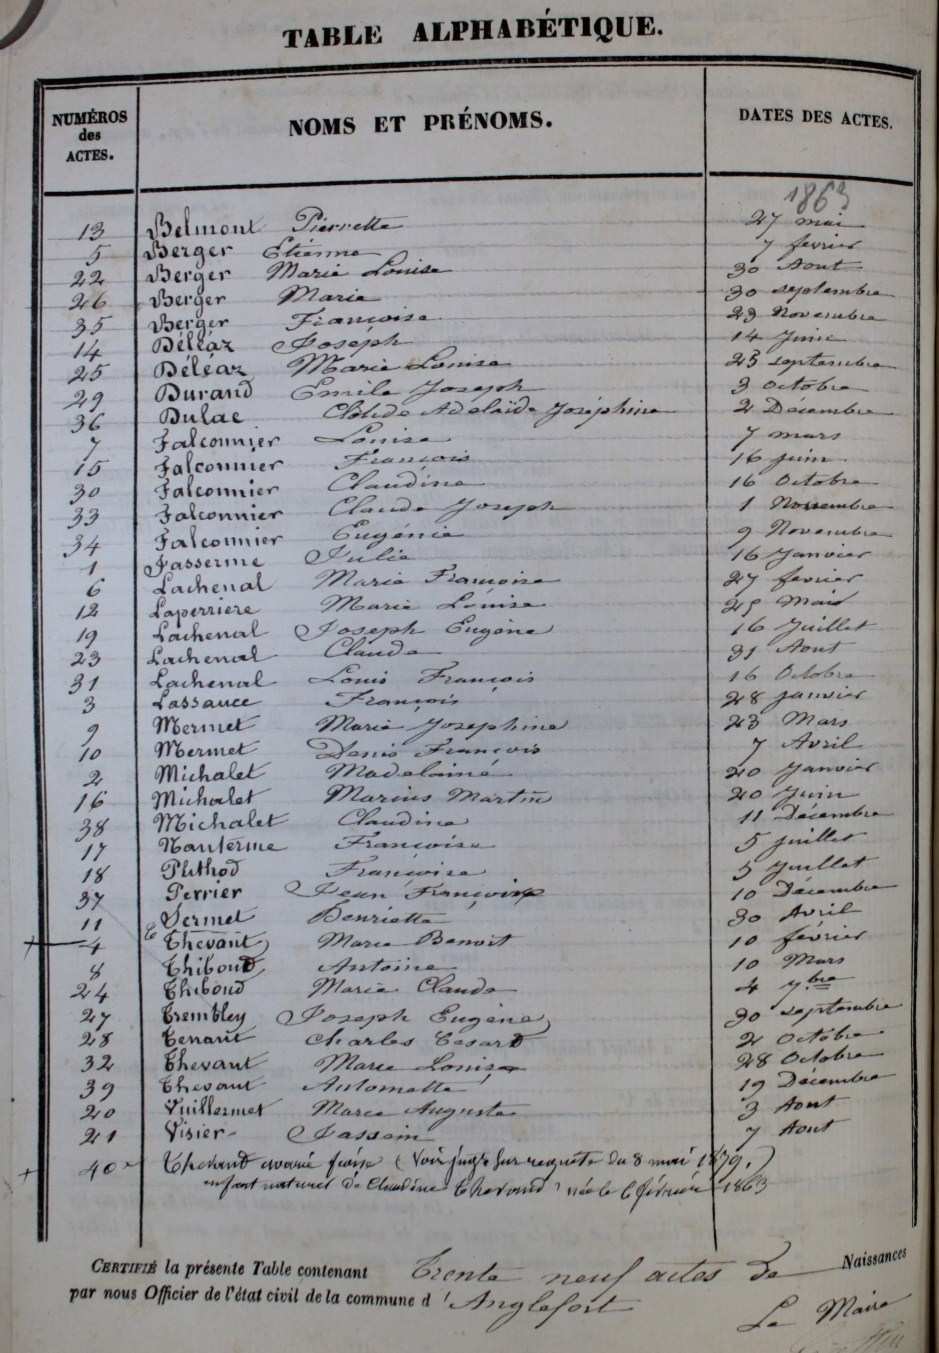 TABLE ALPHABÉTIQUE.
NUMÉROS des ACTES. NOMS ET PRÉNOMS. DATES DES ACTES.
1863
13 Belmont Pierrette 27 mai
5 Berger Etienne 7 février
22 Berger Marie Louise 30 Aout
26 Berger Marie 30 septembre
35 Berger Françoise 23 Novembre
14 Déléaz Joséph 14 Juin
25 Déléaz Marie Louise 23 septembre
29 Durand Emile Joseph 3 Octobre
36 Dulac Adelaïde Joséphine 2 Décembre
7 Falconnier Louise 7 mars
15 Falconnier François 16 juin
30 Falconnier Claudine 16 Octobre
33 Falconnier Claude Joseph 1 Novembre
34 Falconnier Eugénie 9 Novembre
1 Jasserme Julie 16 Janvier
6 Lachenal Marie Françoise 27 fevrier
12 Laperriere Marie Louise 25 Mai
19 Lachenal Joseph Eugène 16 Juillet
23 Lachenal Claude 31 Aout
31 Lachenal Louis François 16 Octobre
3 Lassauce François 28 janvier
9 Mermet Marie Josephine 23 Mars
10 Mermet Denis François 7 Avril
2 Michalet Madelaine 20 Janvier
16 Michalet Marius Martin 20 Juin
38 Michalet Claudine 11 Décembre
17 Nanterme Françoise 5 juillet
18 Puthod Françoise 5 Juillet
37 Perrier Jean François 10 Décembre
11 Sermet Henriette 30 Avril
4 Thevant Marie Benoit 10 février
8 Thiboud Antoine 10 Mars
24 Thiboud Marie Claude 4 7bre
27 Trembley Joseph Eugène 30 septembre
28 Tenant Charles Cesard 2 Octobre
32 Thevant Marie Louise 28 Octobre
39 Thevant Antoinette 19 Décembre
20 Vuillermet Marie Auguste 3 Aout
21 Visier Jassein 7 Aout
40 Thevand marie (Voir jugt sur requete du 8 mai 1879.)
enfant naturel de Claudine Thevand née le 6 février 1863
CERTIFIÉ la présente Table contenant Trente neuf actes de Naissances
par nous Officier de l'état civil de la commune d'Anglefort
Le Maire